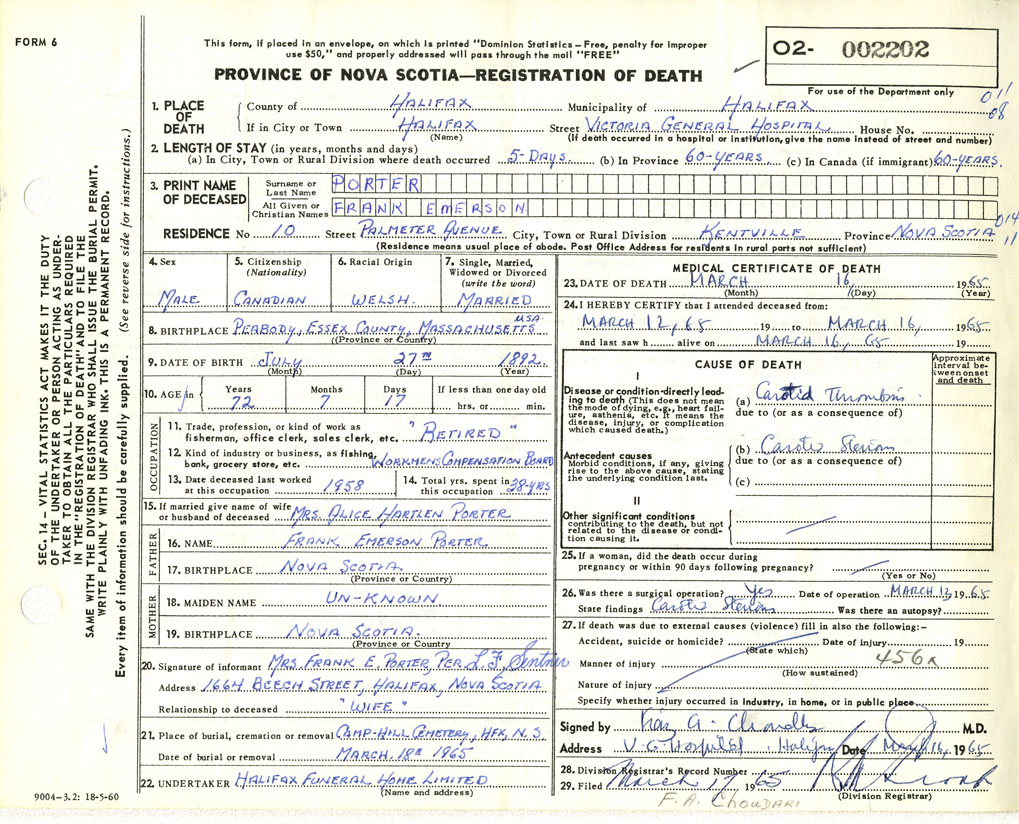 FORM 6
This form, if placed in an envelope, on which is printed "Dominion Statistics – Free, penalty for improper
use $50," and properly addressed will pass through the mail "FREE"
PROVINCE OF NOVA SCOTIA—REGISTRATION OF DEATH
02- 002202
For use of the Department only
011
08
1. PLACE OF DEATH
County of HALIFAX Municipality of HALIFAX
If in City or Town HALIFAX Street VICTORIA GENERAL HOSPITAL House No.
(Name) (If death occurred in a hospital or institution, give the name instead of street and number)
2. LENGTH OF STAY (in years, months and days)
(a) In City, Town or Rural Division where death occurred 5-DAYS (b) In Province 60-YEARS (c) In Canada (if immigrant) 60-YEARS.
3. PRINT NAME OF DECEASED
Surname or Last Name PORTER
All Given or Christian Names FRANK EMERSON
014
11
RESIDENCE No 10 Street PALMETER AVENUE City, Town or Rural Division KENTVILLE Province NOVA SCOTIA
(Residence means usual place of abode. Post Office Address for residents in rural parts not sufficient)
4. Sex
MALE
5. Citizenship (Nationality)
CANADIAN
6. Racial Origin
WELSH.
7. Single, Married, Widowed or Divorced (write the word)
MARRIED
8. BIRTHPLACE PEABODY, ESSEX COUNTY, MASSACHUSETTS USA.
(Province or Country)
9. DATE OF BIRTH JULY 27TH 1892
(Month) (Day) (Year)
10. AGE in
Years 72
Months 7
Days 17
If less than one day old
hrs. or min.
OCCUPATION
11. Trade, profession, or kind of work as
fisherman, office clerk, sales clerk, etc. "RETIRED"
12. Kind of industry or business, as fishing,
bank, grocery store, etc. WORKMENS COMPENSATION BOARD
13. Date deceased last worked
at this occupation 1958
14. Total yrs. spent in
this occupation 38-YRS
15. If married give name of wife
or husband of deceased MRS. ALICE HARTLEN PORTER
FATHER
16. NAME FRANK EMERSON PORTER.
17. BIRTHPLACE NOVA SCOTIA
(Province or Country)
MOTHER
18. MAIDEN NAME UN-KNOWN
19. BIRTHPLACE NOVA SCOTIA.
(Province or Country)
20. Signature of informant MRS. FRANK E. PORTER, PER L F. Sentner
Address 1664 BEECH STREET, HALIFAX, NOVA SCOTIA
Relationship to deceased "WIFE"
21. Place of burial, cremation or removal CAMP-HILL CEMETERY, HFX, N.S.
Date of burial or removal MARCH. 18TH 1965
22. UNDERTAKER HALIFAX FUNERAL HOME LIMITED
(Name and address)
MEDICAL CERTIFICATE OF DEATH
23. DATE OF DEATH MARCH 16, 1965
(Month) (Day) (Year)
24. I HEREBY CERTIFY that I attended deceased from:
MARCH 12, 65 19 to MARCH 16, 1965
and last saw h alive on MARCH 16, 65 19
CAUSE OF DEATH
Approximate interval between onset and death
I
Disease or condition directly leading to death (This does not mean the mode of dying, e.g., heart failure, asthenia, etc. It means the disease, injury, or complication which caused death.)
(a) Carotid Thrombosis
due to (or as a consequence of)
Antecedent causes
Morbid conditions, if any, giving rise to the above cause, stating the underlying condition last.
(b) Carotid Stenosis
due to (or as a consequence of)
(c)
II
Other significant conditions
contributing to the death, but not related to the disease or condition causing it.
25. If a woman, did the death occur during
pregnancy or within 90 days following pregnancy?
(Yes or No)
26. Was there a surgical operation? Yes Date of operation MARCH 12, 1965
State findings Carotid Stenosis Was there an autopsy?
27. If death was due to external causes (violence) fill in also the following:–
Accident, suicide or homicide? Date of injury 19
(State which)
Manner of injury 456x
(How sustained)
Nature of injury
Specify whether injury occurred in industry, in home, or in public place
Signed by M.D.
Address V. G. Hospital. Halifax Date March 16, 1965
28. Division Registrar's Record Number
29. Filed March 17 1965
(Division Registrar)
F. A. CHOUDARI
SEC. 14 – VITAL STATISTICS ACT MAKES IT THE DUTY
OF THE UNDERTAKER OR PERSON ACTING AS UNDER-
TAKER TO OBTAIN ALL THE PARTICULARS REQUIRED
IN THE "REGISTRATION OF DEATH" AND TO FILE THE
SAME WITH THE DIVISION REGISTRAR WHO SHALL ISSUE THE BURIAL PERMIT.
WRITE PLAINLY WITH UNFADING INK. THIS IS A PERMANENT RECORD.
Every item of information should be carefully supplied. (See reverse side for instructions.)
9004-3.2: 18-5-60